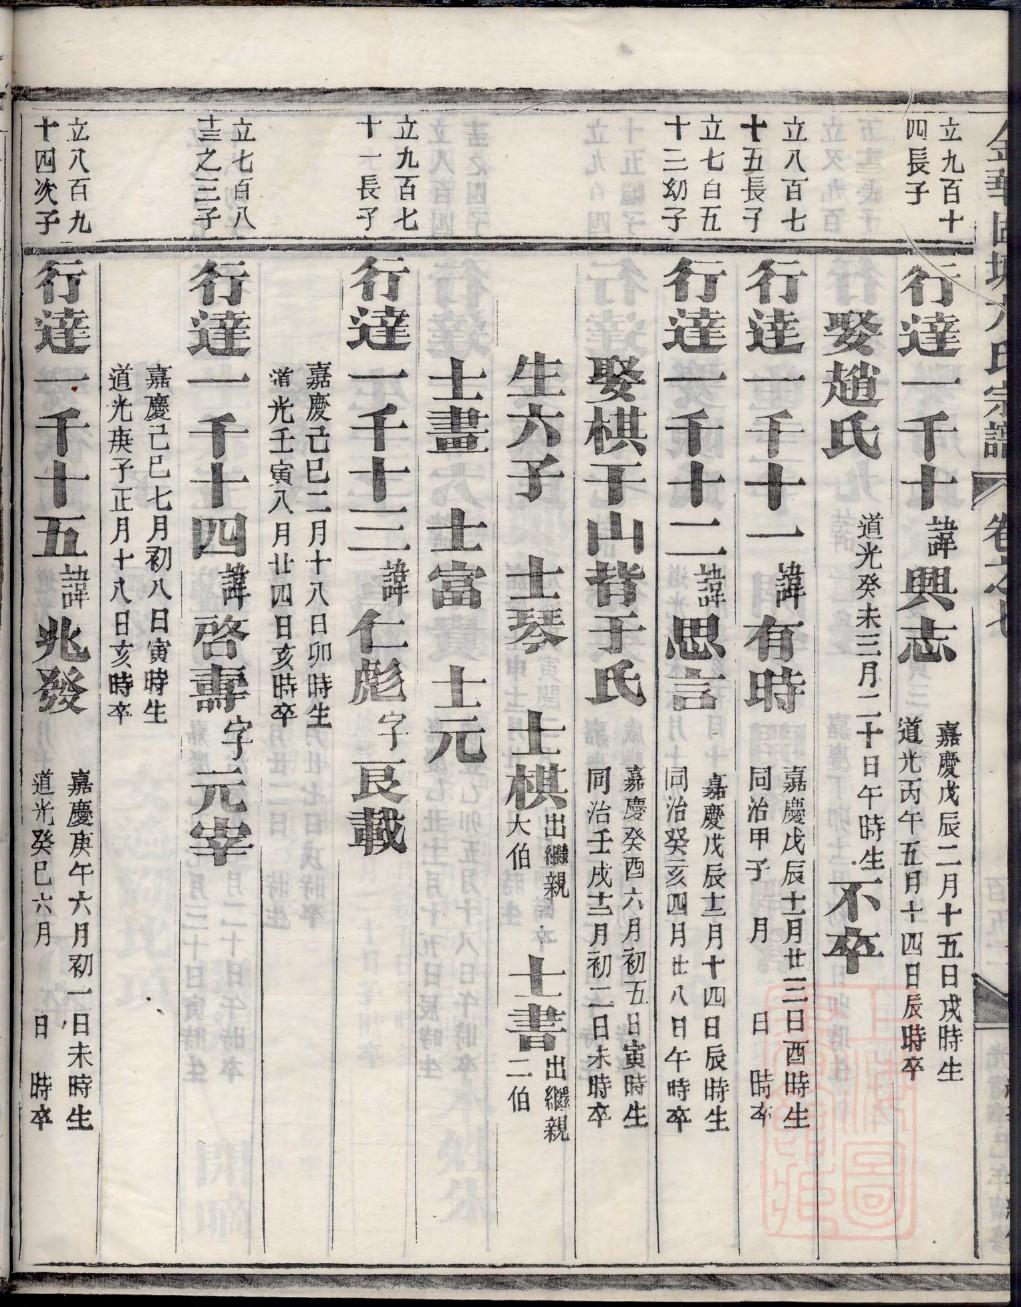 立九百十
四長子
行達一千十諱興志
嘉慶戊辰二月十五日戌時生
道光丙午五月十四日辰時卒
娶趙氏
道光癸未三月二十日午時生
不卒
立八百七
十五長子
行達一千十一諱有時
嘉慶戊辰十一月廿三日酉時生
同治甲子 月 日 時卒
立七百五
十三幼子
行達一千十二諱思言
嘉慶戊辰十二月十四日辰時生
同治癸亥四月廿八日午時卒
娶棋干山背于氏
嘉慶癸酉六月初五日寅時生
同治壬戌十二月初二日未時卒
生六子 士琴 士棋
出繼親
大伯
士書
出繼親
二伯
士畫 士富 士元
立九百七
十一長子
行達一千十三諱仁彪字艮載
嘉慶己巳二月十八日卯時生
道光壬寅八月廿四日亥時卒
立七百八
十三之三子
行達一千十四諱啓壽字元宰
嘉慶己巳七月初八日寅時生
道光庚子正月十八日亥時卒
立八百九
十四次子
行達一千十五諱兆發
嘉慶庚午六月初一日未時生
道光癸巳六月 日 時卒